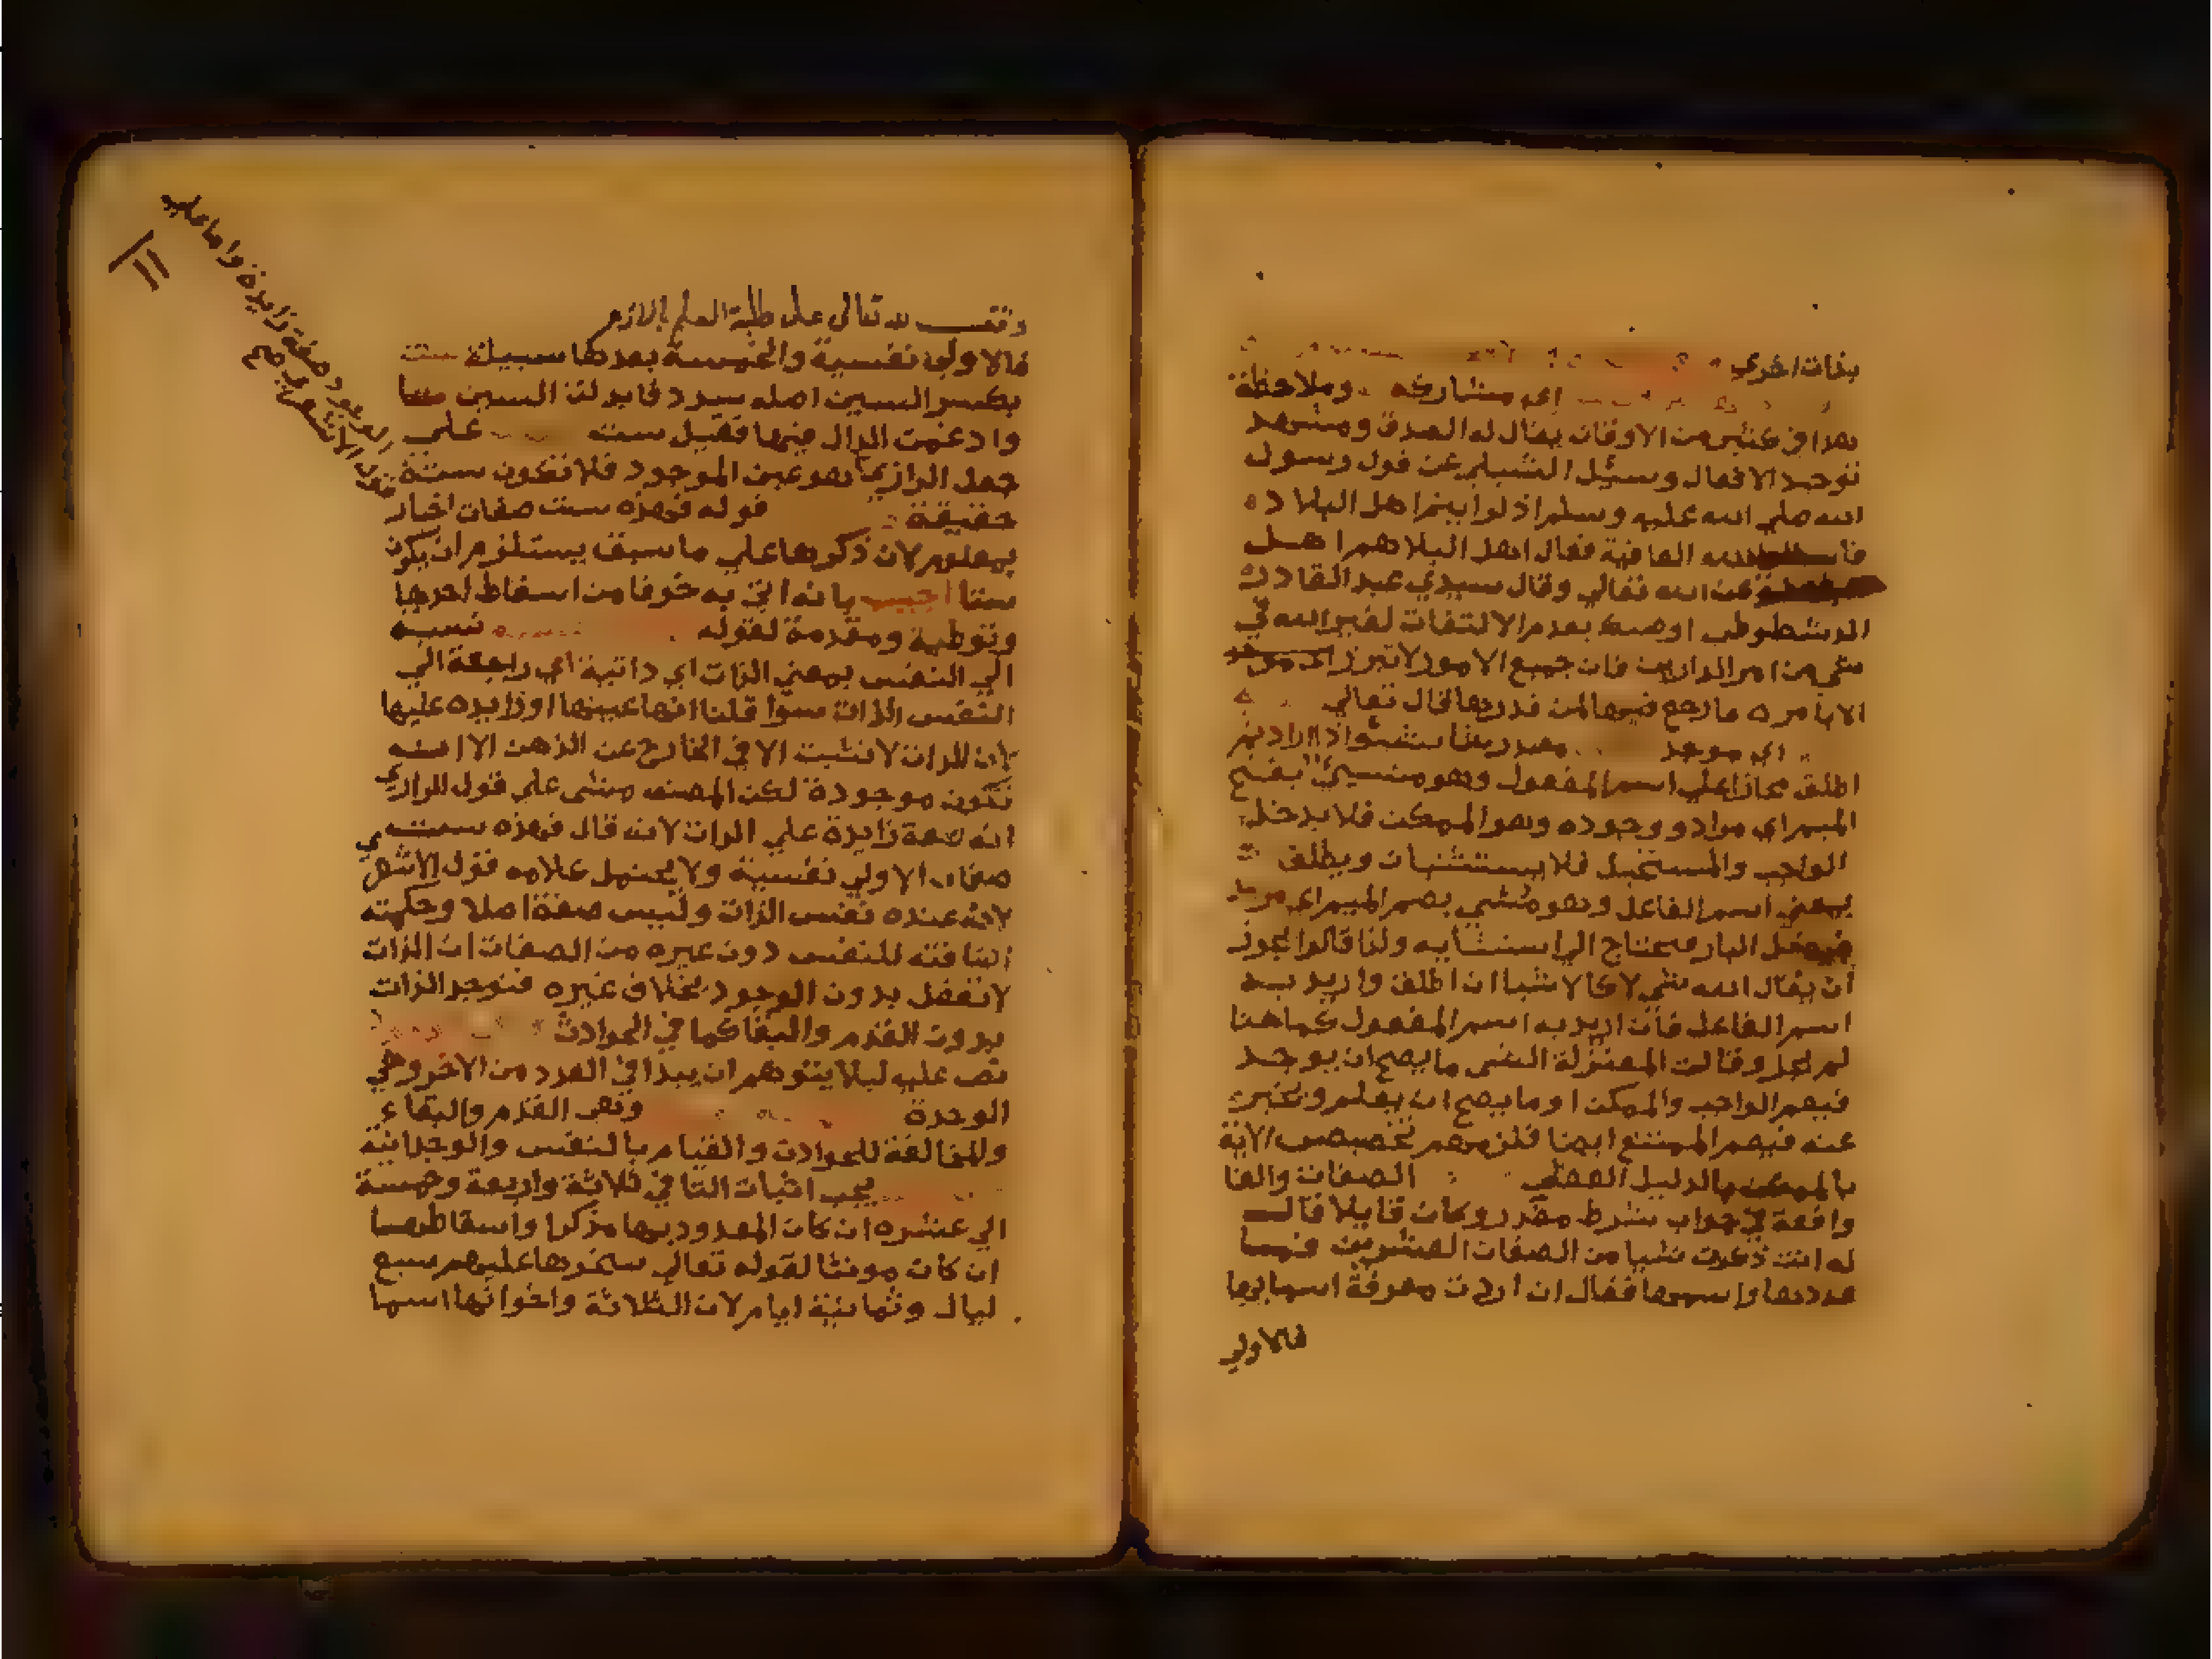 بذات اخري
اي مشاركه وملاحظة
هذا في كثير من الاوقات يقال له الصدق ومشهد
توحيد الافعال وسئل الشبلي عن قول رسول
الله صلي الله عليه وسلم اذ لوايتم اهل البلا
الله العافية فقال اهل البلا هم اهل
عن الله تعالي وقال سيدي عبد القادر
الدشطوطي اوصيك بعدم الالتفات لغير الله في
شي من امر الدارين فان جميع الامور لا تبرز
الا بامره فارجع فيها لمن قدرها قال تعالي
اي موجد مصدر شا
اطلق مجازا علي اسم المفعول وهو مشيئ بفتح
الميم اي مراد وجوده وهو الممكن فلا يدخل
الواجب والمستحيل فلا يستثنيان ويطلق
بمعني اسم الفاعل وهو مشي بضم الميم اي مريد
البار فيحتاج الي استثنايه ولذا قالوا يجوز
ان يقال الله شي لا كالاشيا ان اطلق واريد به
اسم الفاعل فان اريد به اسم المفعول كما هنا
لم يجز وقالت المعتزلة الشي ما يصح ان يوجد
فيعم الواجب والممكن او ما يصح ان يعلم ويخبر
عنه فيعم الممتنع ايضا فلزمهم تخصيص الاية
بالممكن بالدليل العقلي الصفات والفا
واقعة في جواب شرط مقدر وكان قايلا قال
له انت ذكرت شيا من الصفات العشرين فهما
عددها واسمها فقال ان اردت معرفة اسمايها
فالاولي
وقف لله تعالي علي طلبة العلم بالازهر
فالاولي نفسية والخمسة بعدها سبيلة ست
بكسر السين اصله سدد فابدلت السين
وادغمت الدال فيها فقيل ست علي
جعل الرازي هو عين الموجود فلا تكون ستة
حقيقة قوله فهذه ست صفات اخبار
بمعلوم لان ذكرها علي ما سبق يستلزم ان يكون
ستا اجيب بانه اتي به خوفا من اسقاط احدها
وتوطية ومقدمة لقوله نسبه
الي النفس بمعني الذات اي ذاتية اي راجعة الي
النفس الذات سوا قلنا انها عينها او زايده عليها
لان الذات لا تثبت الا في الخارج عن الذهن الا انه
تكون موجودة لكن المصنف مشي علي قول الرازي
انه صفة زايدة علي الذات لانه قال فهذه ست
صفات الاولي نفسية ولا يحتمل علامه قول الاشعري
لانه عنده نفس الذات وليس صفة اصلا وحكمته
اضافته للنفس دون غيره من الصفات ان الذات
لا تعقل بدون الوجود بخلاف غيره فتوجد الذات
بدون القدم والبقا كما في الحوادث
نص عليه ليلا يتوهم ان يبدا في العدد من الاخر وهي
الوحدة وهي القدم والبقاء
والمخالفة للحوادث والقيام بالنفس والوحدانية
يجب اثبات التا في ثلاثة واربعة وخمسة
الي عشره ان كان المعدود بها مذكرا واسقاطها
ان كان مونثا لقوله تعالي سخرها عليهم سبع
ليال وثمانية ايام لان الثلاثة واخواتها اسما
الوجود صفة زايدة واما علي
قول الاشعري صح